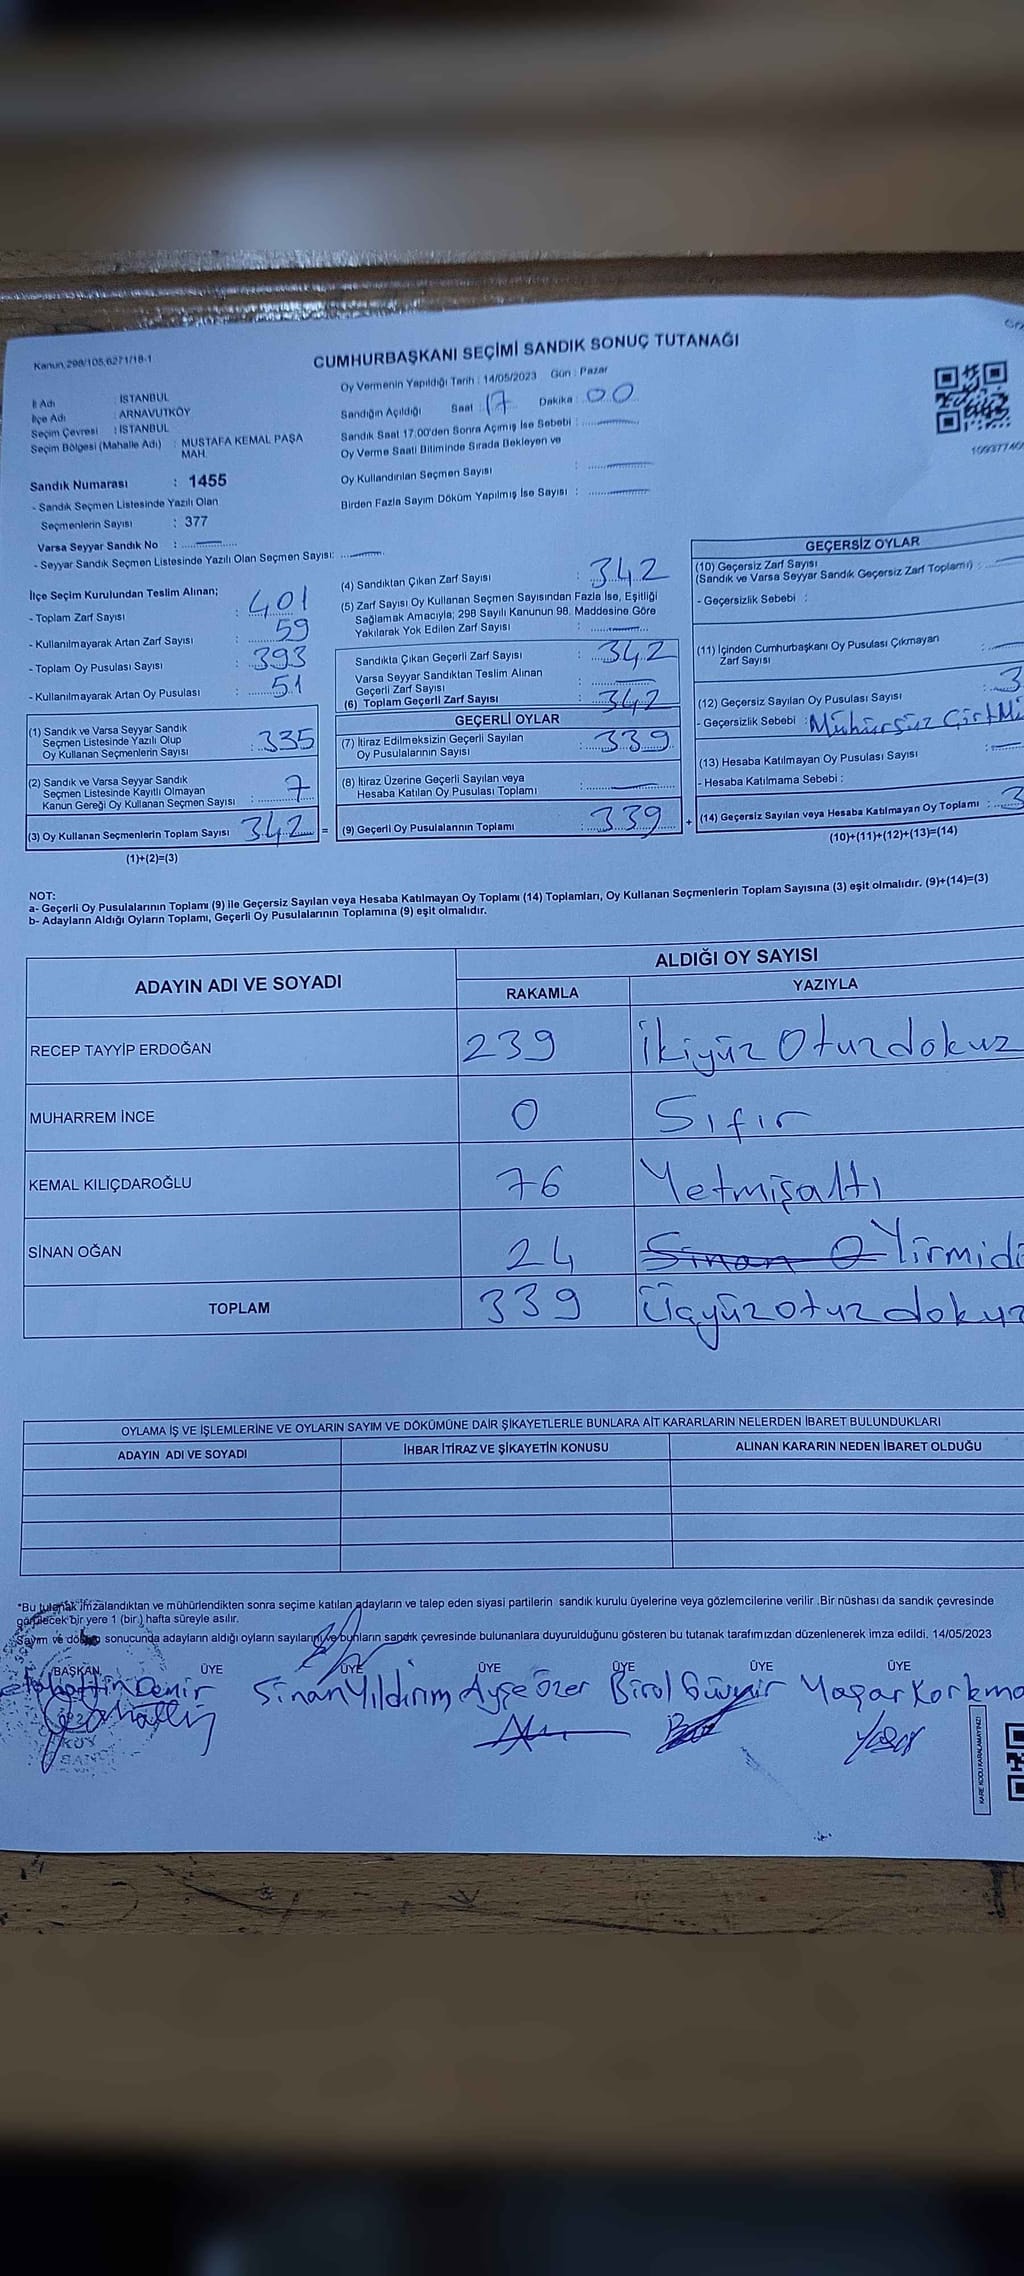 Kanun,298/105,6271/18-1
CUMHURBAŞKANI SEÇİMİ SANDIK SONUÇ TUTANAĞI
Oy Vermenin Yapıldığı Tarih : 14/05/2023 Gün : Pazar
İl Adı : İSTANBUL
İlçe Adı : ARNAVUTKÖY
Seçim Çevresi : İSTANBUL
Seçim Bölgesi (Mahalle Adı) : MUSTAFA KEMAL PAŞA
MAH.
Sandığın Açıldığı Saat : 17 Dakika : 00
Sandık Saat 17:00'den Sonra Açımış İse Sebebi :
Oy Verme Saati Bitiminde Sırada Bekleyen ve
Oy Kullandırılan Seçmen Sayısı :
Birden Fazla Sayım Döküm Yapılmış İse Sayısı :
Sandık Numarası : 1455
- Sandık Seçmen Listesinde Yazılı Olan
Seçmenlerin Sayısı : 377
Varsa Seyyar Sandık No :
- Seyyar Sandık Seçmen Listesinde Yazılı Olan Seçmen Sayısı:
İlçe Seçim Kurulundan Teslim Alınan;
- Toplam Zarf Sayısı : 401
- Kullanılmayarak Artan Zarf Sayısı : 59
- Toplam Oy Pusulası Sayısı : 393
- Kullanılmayarak Artan Oy Pusulası : 51
(1) Sandık ve Varsa Seyyar Sandık
Seçmen Listesinde Yazılı Olup
Oy Kullanan Seçmenlerin Sayısı : 335
(2) Sandık ve Varsa Seyyar Sandık
Seçmen Listesinde Kayıtlı Olmayan
Kanun Gereği Oy Kullanan Seçmen Sayısı : 7
(3) Oy Kullanan Seçmenlerin Toplam Sayısı 342 =
(1)+(2)=(3)
(4) Sandıktan Çıkan Zarf Sayısı : 342
(5) Zarf Sayısı Oy Kullanan Seçmen Sayısından Fazla İse, Eşitliği
Sağlamak Amacıyla; 298 Sayılı Kanunun 98. Maddesine Göre
Yakılarak Yok Edilen Zarf Sayısı :
Sandıkta Çıkan Geçerli Zarf Sayısı : 342
Varsa Seyyar Sandıktan Teslim Alınan
Geçerli Zarf Sayısı :
(6) Toplam Geçerli Zarf Sayısı : 342
GEÇERLİ OYLAR
(7) İtiraz Edilmeksizin Geçerli Sayılan
Oy Pusulalarının Sayısı : 339
(8) İtiraz Üzerine Geçerli Sayılan veya
Hesaba Katılan Oy Pusulası Toplamı :
(9) Geçerli Oy Pusulalarının Toplamı : 339 +
GEÇERSİZ OYLAR
(10) Geçersiz Zarf Sayısı
(Sandık ve Varsa Seyyar Sandık Geçersiz Zarf Toplamı) :
- Geçersizlik Sebebi :
(11) İçinden Cumhurbaşkanı Oy Pusulası Çıkmayan
Zarf Sayısı :
(12) Geçersiz Sayılan Oy Pusulası Sayısı : 3
- Geçersizlik Sebebi : Mühürsüz
(13) Hesaba Katılmayan Oy Pusulası Sayısı :
- Hesaba Katılmama Sebebi :
(14) Geçersiz Sayılan veya Hesaba Katılmayan Oy Toplamı : 3
(10)+(11)+(12)+(13)=(14)
NOT:
a- Geçerli Oy Pusulalarının Toplamı (9) ile Geçersiz Sayılan veya Hesaba Katılmayan Oy Toplamı (14) Toplamları, Oy Kullanan Seçmenlerin Toplam Sayısına (3) eşit olmalıdır. (9)+(14)=(3)
b- Adayların Aldığı Oyların Toplamı, Geçerli Oy Pusulalarının Toplamına (9) eşit olmalıdır.
ADAYIN ADI VE SOYADI
ALDIĞI OY SAYISI
RAKAMLA YAZIYLA
RECEP TAYYİP ERDOĞAN 239 İkiyüz Otuzdokuz
MUHARREM İNCE 0 Sıfır
KEMAL KILIÇDAROĞLU 76 Yetmişaltı
SİNAN OĞAN 24 Sinan O Yirmidö
TOPLAM 339 Üçyüzotuzdokuz
OYLAMA İŞ VE İŞLEMLERİNE VE OYLARIN SAYIM VE DÖKÜMÜNE DAİR ŞİKAYETLERLE BUNLARA AİT KARARLARIN NELERDEN İBARET BULUNDUKLARI
ADAYIN ADI VE SOYADI İHBAR İTİRAZ VE ŞİKAYETİN KONUSU ALINAN KARARIN NEDEN İBARET OLDUĞU
*Bu tutanak imzalandıktan ve mühürlendikten sonra seçime katılan adayların ve talep eden siyasi partilerin sandık kurulu üyelerine veya gözlemcilerine verilir .Bir nüshası da sandık çevresinde
görülecek bir yere 1 (bir.) hafta süreyle asılır.
Sayım ve döküm sonucunda adayların aldığı oyların sayılarını ve bunların sandık çevresinde bulunanlara duyurulduğunu gösteren bu tutanak tarafımızdan düzenlenerek imza edildi. 14/05/2023
BAŞKAN ÜYE ÜYE ÜYE ÜYE ÜYE ÜYE
Demir Sinan Yıldırım Ayşe Özer Birol Yaşar Korkma
Yaşar
KARE KODU KARALAMAYINIZ!